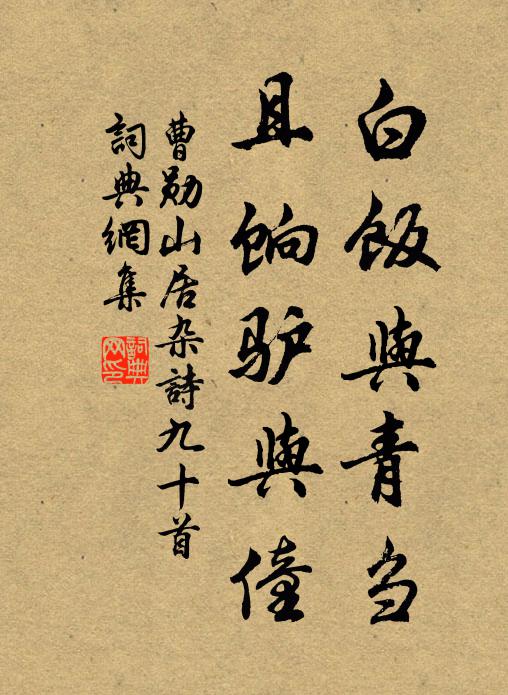 白飯與青刍
且饷驴與僮
曹勋山居杂詩九十首
詞典網集
詞典网印